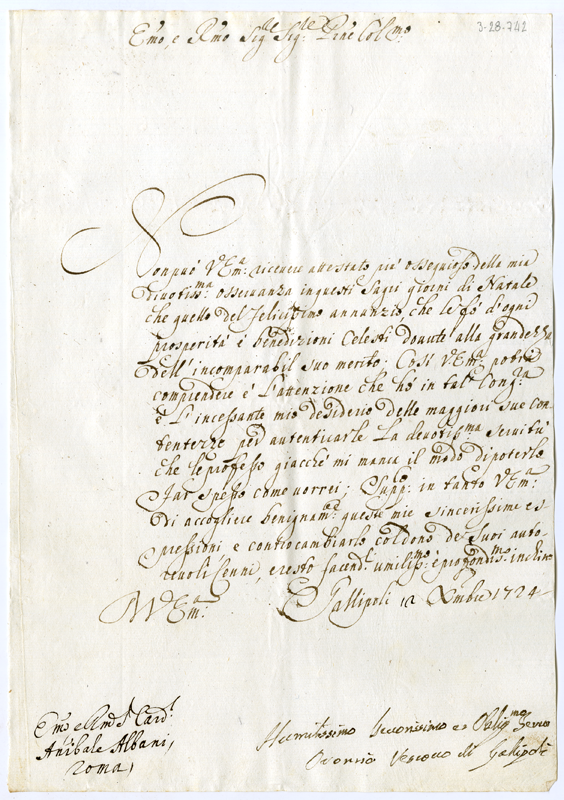 3-28-742
Emo, e Rmo Sigre Sigre Prne Colmo
Non può V. Ema. ricevere attestato più ossequioso della mia
divotissma osservanza in questi Sagri giorni di Natale
che quello del felicissimo annunzio, che le fò d'ogni
prosperità e benedizioni Celesti dovute alla grandezza
dell'incomparabil suo merito. Così V. Ema. potrà
comprendere e L'attenzione che hò in tal Congra
e L'incessante mio desiderio delle maggiori sue con-
tentezze ped autenticarle La devotissma servitù
che le professo giacchè mi manca il modo di poterlo
far spesso come vorrei; Suppco in tanto V. Ema.
di accogliere benignamte queste mie sincerissime es-
pressioni e contracambiarle col dono de' Suoi auto-
revoli Cenni, e resto facendle umilissmo e profondissmo inchino
Di V. Ema. Gallipoli 12 Xmbre 1724
Emo e Rmo Sr Cardl
Annibale Albani,
Roma,
Humilissimo Devotissimo et Obligmo Servo
Oronzio Vescovo di Gallipoli